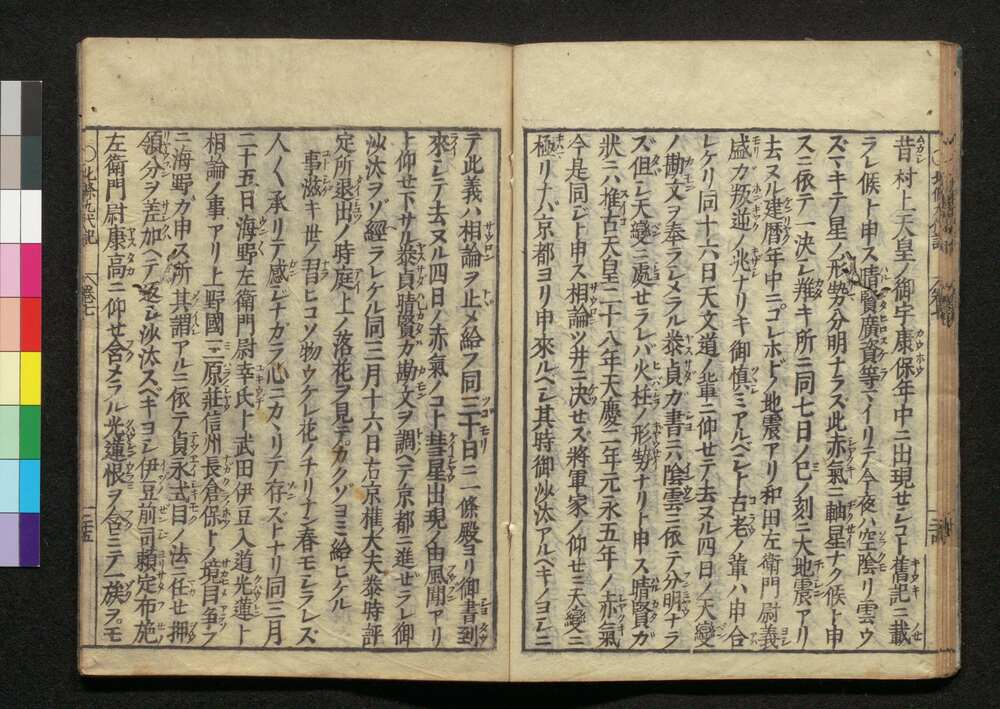 昔村上天皇ノ御宇康保年中ニ出現セシコト舊記ニ載
ラレ候ト申ス晴賢廣資等マイリテ今夜ハ空陰リ雲ウ
ズマキテ星ノ形勢分明ナラズ此赤氣ニ軸星ナク候ト申
スニ依テ一決シ難キ所ニ同七日ノ巳ノ刻ニ大地震アリ
去ヌル建暦年中ニコレホドノ地震アリ和田左衛門尉義
盛カ叛逆ノ兆ナリキ御慎ミアルベシト古老ノ輩ハ申合
レケリ同十六日天文道ノ輩ニ仰セテ去ヌル四日ノ天變
ノ勘文ヲ奉ラシメラル泰貞カ書ニハ陰雲ニ依テ分明ナラ
ズ但シ天變ニ處セラレバ火柱ノ形勢ナリト申ス晴賢カ
狀ニハ推古天皇二十八年天慶二年元永五年ノ赤氣
今是同ジト申ス相論ツ井ニ決セズ將軍家ノ仰セニ天變ニ
極リナバ京都ヨリ申來ルベシ其時御沙汰アルベキノヨシニ
テ此義ハ相論ヲ止メ給フ同三十日二條殿ヨリ御書到
來シテ去ヌル四日ノ赤氣ノコト彗星出現ノ由風聞アリ
上仰セ下サル泰貞晴賢カ勘文ヲ調ヘテ京都ニ進ゼラレ御
沙汰ヲゾ經ラレケル同三月十六日右京權大夫泰時評
定所退出ノ時庭上ノ落花ヲ見テカクゾヨミ給ヒケル
事滋キ世ノ習ヒコソ物ウケレ花ノチリナン春モシラレズ
人々承リテ感ジナカラ心ニカヽリテ存ズトナリ同三月
二十五日海野左衛門尉幸氏ト武田伊豆入道光蓮ト
相論ノ事アリ上野國三原莊信州長倉保トノ境目争フ
ニ海野カ申ス所其謂アルニ依テ貞永式目ノ法ニ任セ押
領分ヲ差加ヘテ返シ沙汰スベキヨシ伊豆前司頼定布施
左衛門尉康高ニ仰セ含メラル光蓮恨ヲ含ミテ一族ヲモ
北條九代記
卷七